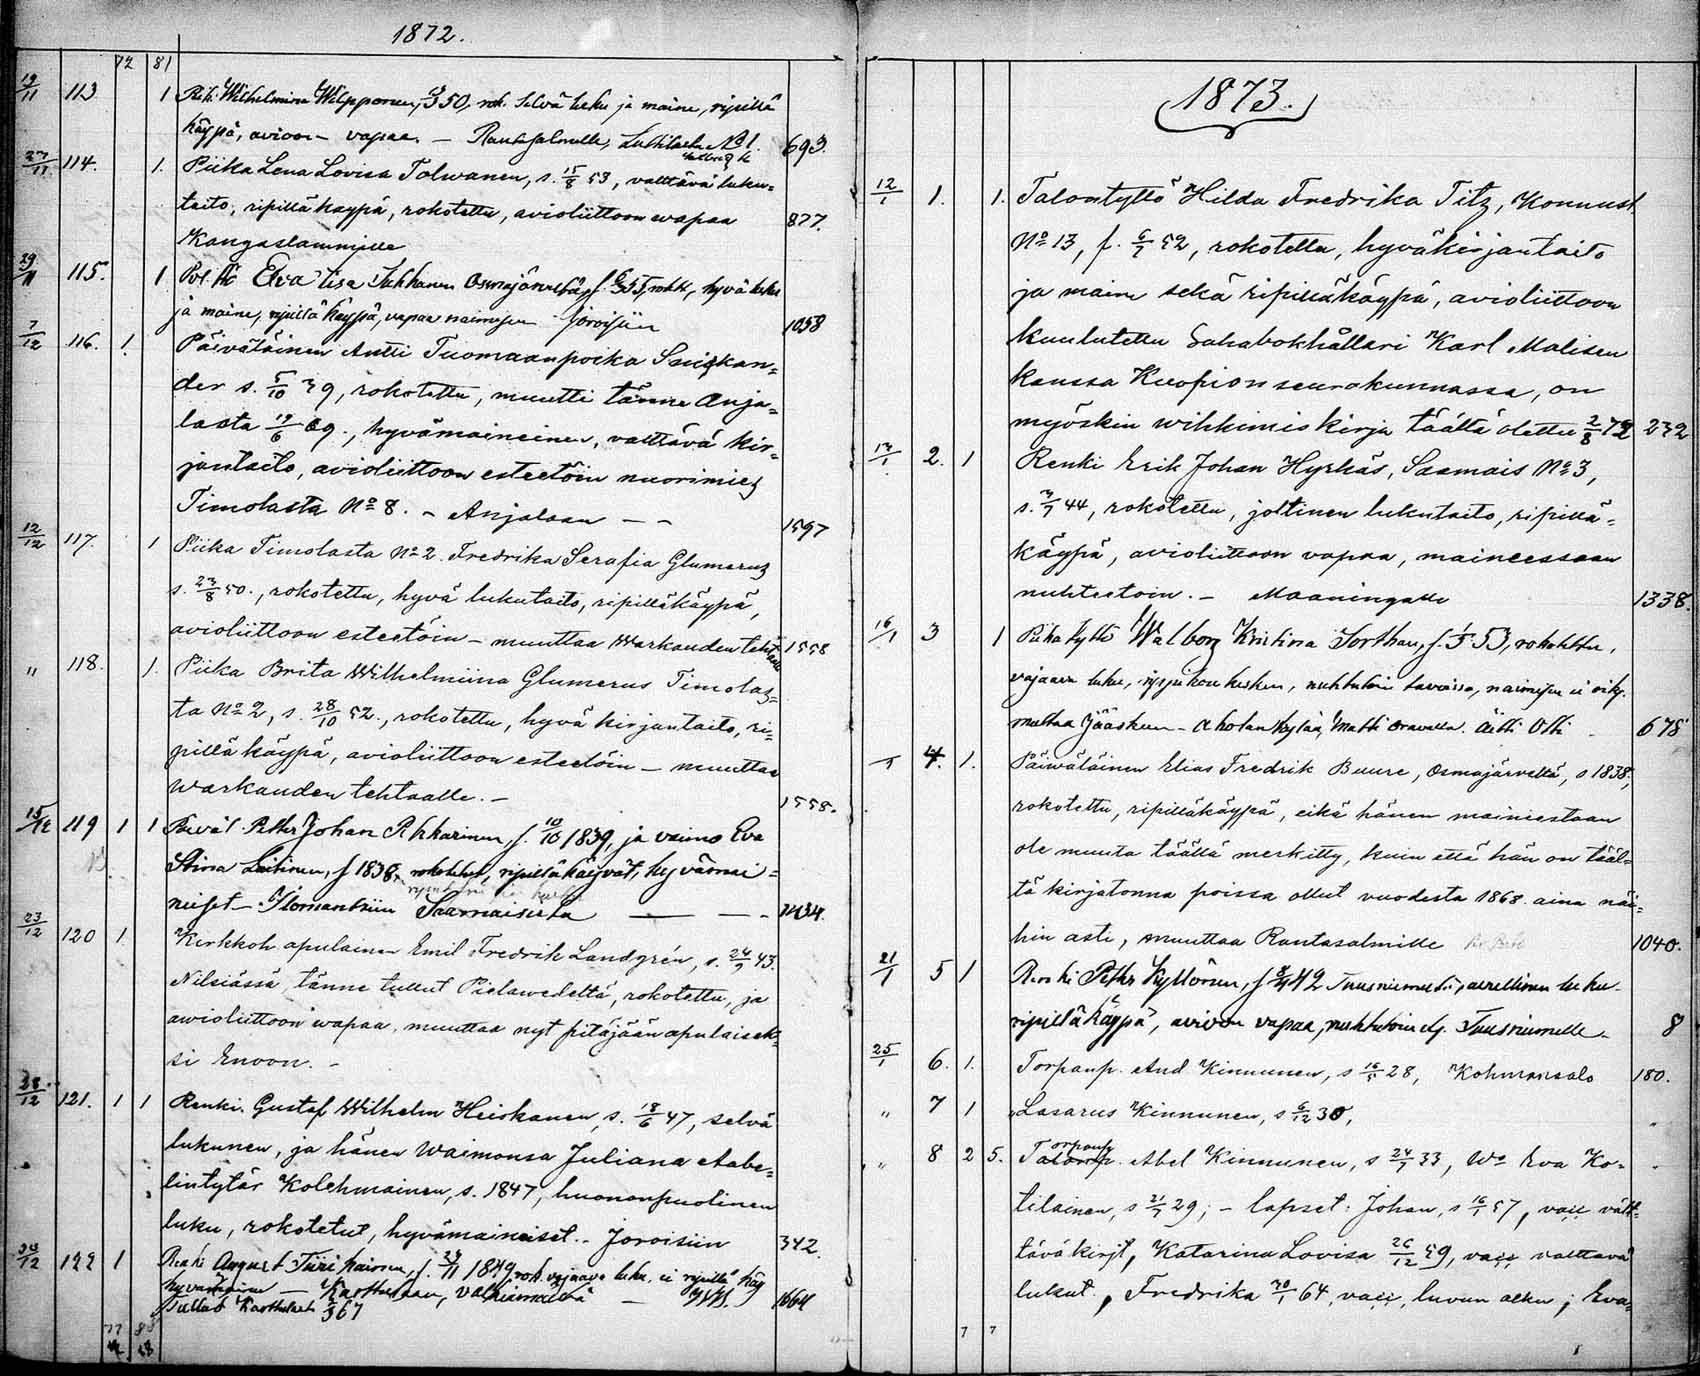 1872.
72 81
19/11 113 1 Piik. Wilhelmina Wilpponen, 50, rok. selvä luku ja maine, ripillä
käypä, avioon vapaa. — Rantasalmelle, No 1. 693.
27/11 114. 1. Piika Lena Lovisa Tolwanen, s. 15/8 53, valttävä luku=
taito, ripillä käypä, rokotettu, avioliittoon wapaa 877.
Kangaslammille
29/11 115. 1 Eva Lisa Osmajärveltä, f. 55, rokt, hyvä luku
ja maine, ripillä käypä, vapaa naimisen Joroisiin 1058
7/12 116. 1. Päivätäinen Antti Tuomaanpoika
der s. 5/10 39, rokotettu, muutti tänne Anja=
lasta 19/6 69., hyvämaineinen, valttävä kir=
jantaito, avioliittoon esteetöin nuorimies
Timolasta No 8. – Anjalaan – – 1597
12/12 117. 1 Piika Timolasta No 2. Fredrika Serafia Glumerus
s. 23/8 50., rokotettu, hyvä lukutaito, ripilläkäypä,
avioliittoon esteetöin – muuttaa Warkauden teht. 1558
" 118. 1. Piika Brita Wilhelmiina Glumerus Timolas=
ta No 2, s. 28/10 52., rokotettu, hyvä kirjantaito, ri=
pillä käypä, avioliittoon esteetöin – muuttaa
Warkauden tehtaalle. – 1558.
15/12 119 1 1 Päivät. Petter Johan f. 10/10 1839, ja vaimo Eva
Stina f 1838, rokotetut, ripillä käyvät, hyvämai=
neiset – Ilomantsiin Saamaisista — — – 1434.
23/12 120 1. Kirkkoh. apulainen Emil Fredrik Landgrén, s. 24/9 43.
Nilsiässä, tänne tullut Pielawedeltä, rokotettu, ja
awioliittoon wapaa, muuttaa nyt pitäjään apulaisek=
si Enoon. –
28/12 121. 1 1 Renki Gustaf Wilhelm Heiskanen, s. 18/6 47, selvä
lukunen, ja hänen Waimonsa Juliana Aabe=
lintytär Kolehmainen, s. 1847, huononpuolinen
luku, rokotetut, hyvämaineiset. – Joroisiin 342.
30/12 122 1 Renki August f. 1849, rok. vajaava luku, ei ripillä käy
hyvämaine — Karttulaan,
Tullut Karttulasta 67
1873.
12/1 1. 1. Talontyttö Hilda Fredrika Titz, Konnust.
No 13, f. 6/7 52, rokotettu, hyväkirjantaito
ja maine sekä ripilläkäypä, avioliittoon
kuulutettu Sahabokhållari Karl Malisen
kanssa Kuopion seurakunnassa, on
myöskin wihkimiskirja täältä otettu 2/8 72 232
13/1 2. 1 Renki Erik Johan Hyrkäs, Saamais No 3,
s. 3/7 44, rokotettu, joltinen lukutaito, ripillä=
käypä, avioliittoon vapaa, maineessaan
nuhteetoin. – Maaningalle 1338.
16/1 3 1 Piikatyttö Walborg Kristina Torthan, f. 53, rokotettu,
vajaava luku, rippikoulukesken, nuhteetoin tavoissa, naimisen ei oik.
muttaa Jääskeen – Aholan kylään, Matti Oravalla. Äiti Otti 678
4. 1. Päiwäläinen Elias Fredrik Buure, Osmajärveltä, s 1838,
rokotettu, ripilläkäypä, eikä hänen maineestaan
ole muuta täällä merkitty, kuin että hän on tääl=
tä kirjatonna poissa ollut vuodesta 1868 aina näi=
hin asti, muuttaa Rantasalmille 1040.
21/1 5 1 Renki Petter Kyllönen, f 42 Tuusniemeltä, luku
ripilläkäypä, avioon vapaa, nuhteetoin Tuusniemelle. 8
25/1 6. 1. Torpanp. And Kinnunen, s 16/5 28, Kohmansalo 180.
" 7 1 " Lasarus Kinnunen, s 6/12 30,
" 8 2 5. Torpanp. Abel Kinnunen, s 24/7 33, Wo Eva Ko=
tilainen, s 21/7 29; – lapset: Johan, s 16/1 57, vacc vält=
tävä kirjt, Katarina Lovisa 26/12 59, vacc valttavä
lukut., Fredrika 30/1 64, vacc, luvun alku; Eva=
7 7